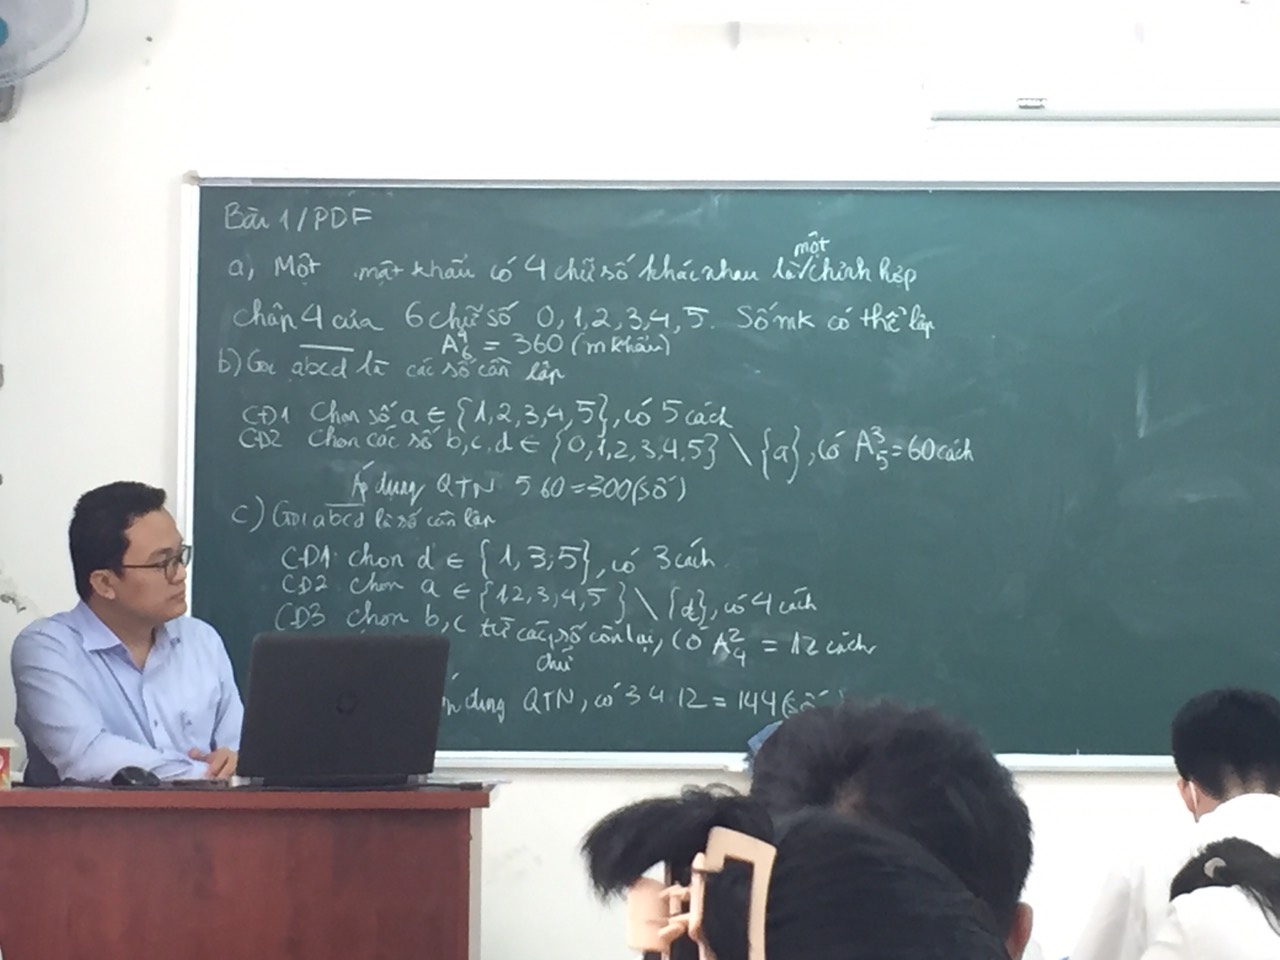 Bài 1/PDF
một
a, Một mật khẩu có 4 chữ số khác nhau là/chỉnh hợp
chập 4 của 6 chữ số 0, 1, 2, 3, 4, 5. Số mk có thể lập
A⁴₆ = 360 (m khẩu)
b) Gọi abcd là các số cần lập
CĐ1 Chọn số a ∈ {1, 2, 3, 4, 5}, có 5 cách
CĐ2 Chọn các số b, c, d ∈ {0, 1, 2, 3, 4, 5} \ {a}, có A³₅ = 60 cách
Áp dụng QTN 5 60 = 300 (số)
c) Gọi abcd là số cần lập
CĐ1: chọn d ∈ {1, 3, 5}, có 3 cách
CĐ2 chọn a ∈ {1 2, 3, 4, 5} \ {d}, có 4 cách
CĐ3 chọn b, c từ các số còn lại, có A²₄ = 12 cách
chữ
dụng QTN, có 3 4 . 12 = 144 (số)